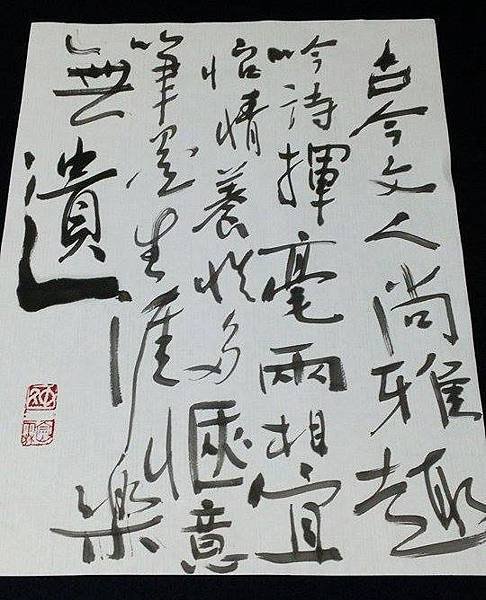 古今文人尚雅趣
吟詩揮毫兩相宜
怡情養性多愜意
筆墨生涯樂
無遺